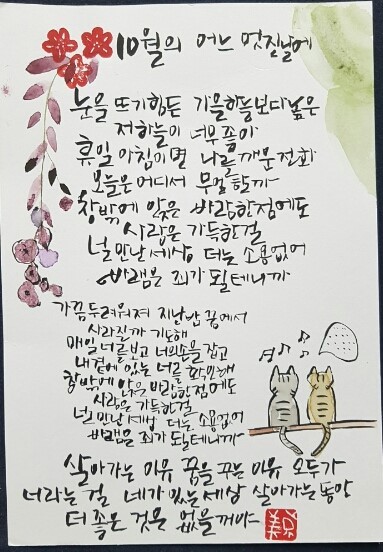 10월의 어느 멋진날에
눈을 뜨기힘든 가을하늘보다높은
저하늘이 너무좋아
휴일 아침이면 나를깨운전화
오늘은어디서 무얼할까
창밖에 앉은 바람한점에도
사랑은 가득한걸
널만난세상 더는 소용없어
바램은 죄가 될테니까
가끔두려워져 지난밤 꿈에서
사라질까 기도해
매일너를보고 너의손을 잡고
내곁에있는 너를 확인해
창밖에 앉은바람한점에도
사랑은 가득한걸
널만난세상 더는 소용없어
바램은 죄가 될테니까
살아가는 이유 꿈을 꾸는 이유 모두가
너라는걸 네가있는세상 살아가는동안
더 좋은 것은 없을꺼야